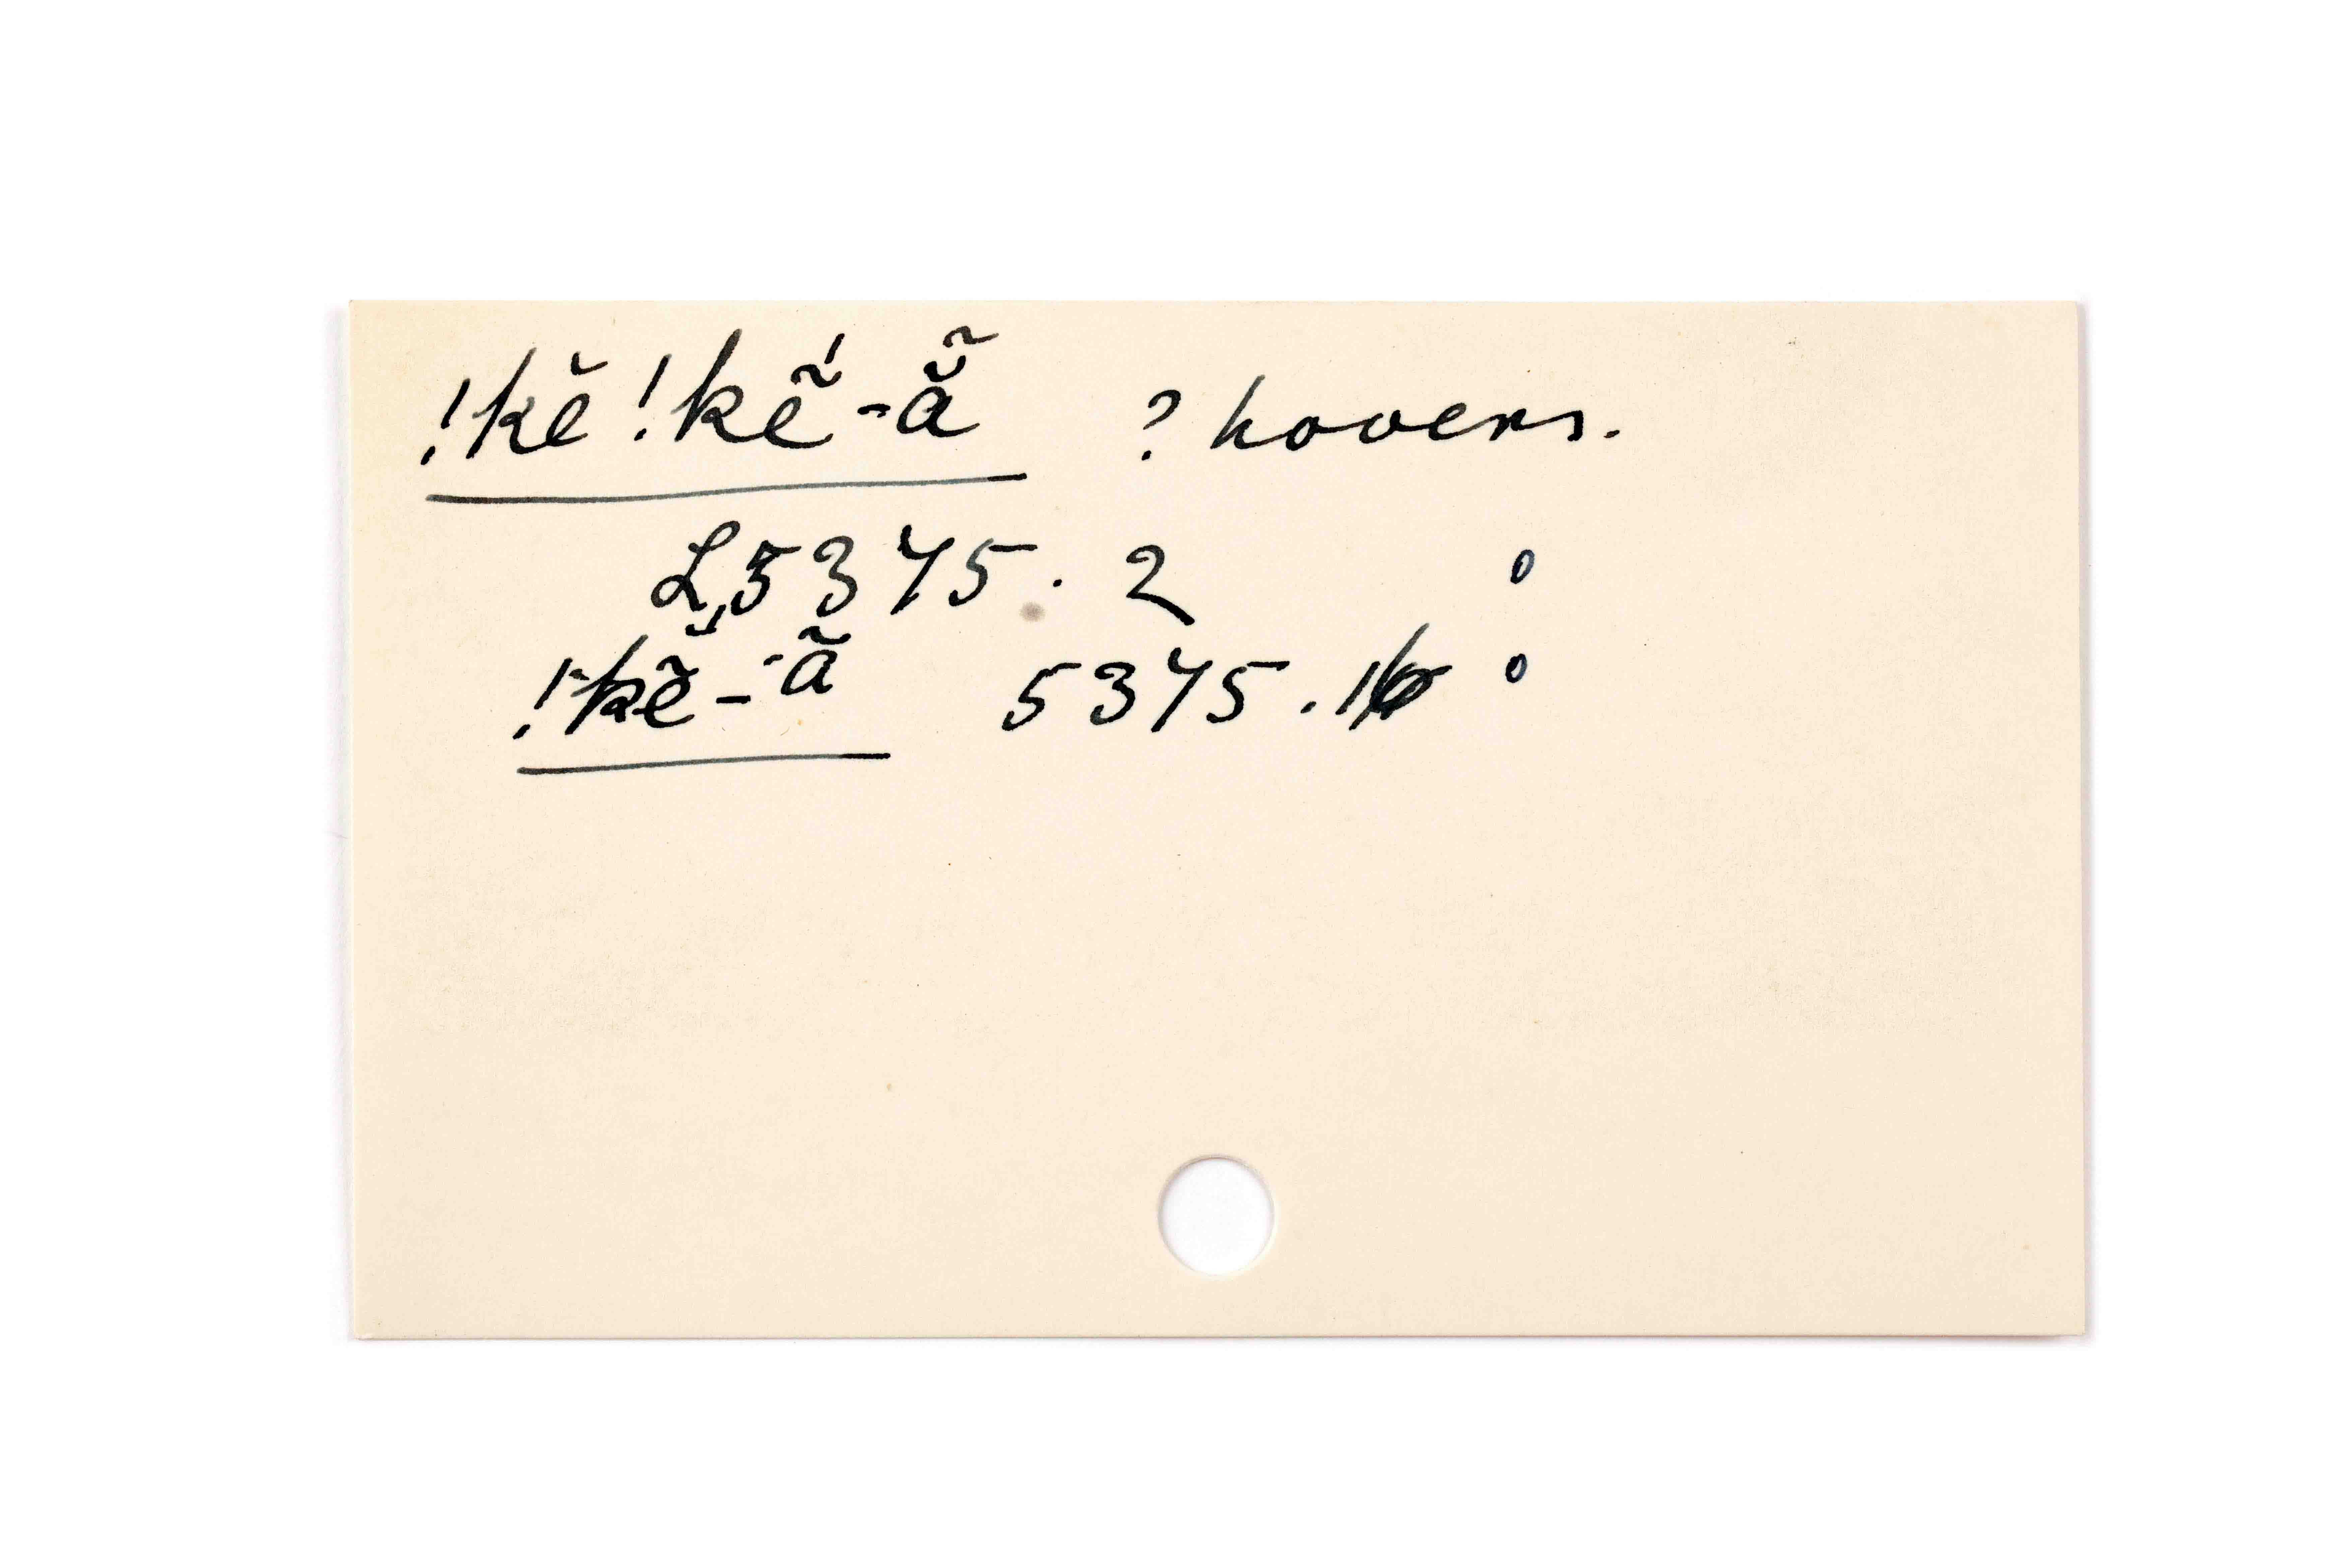 !kĕ !kẽ́-ã̆ ? hovers.
L,5375. 2 o
!kẽ̆-ã 5375.16 o